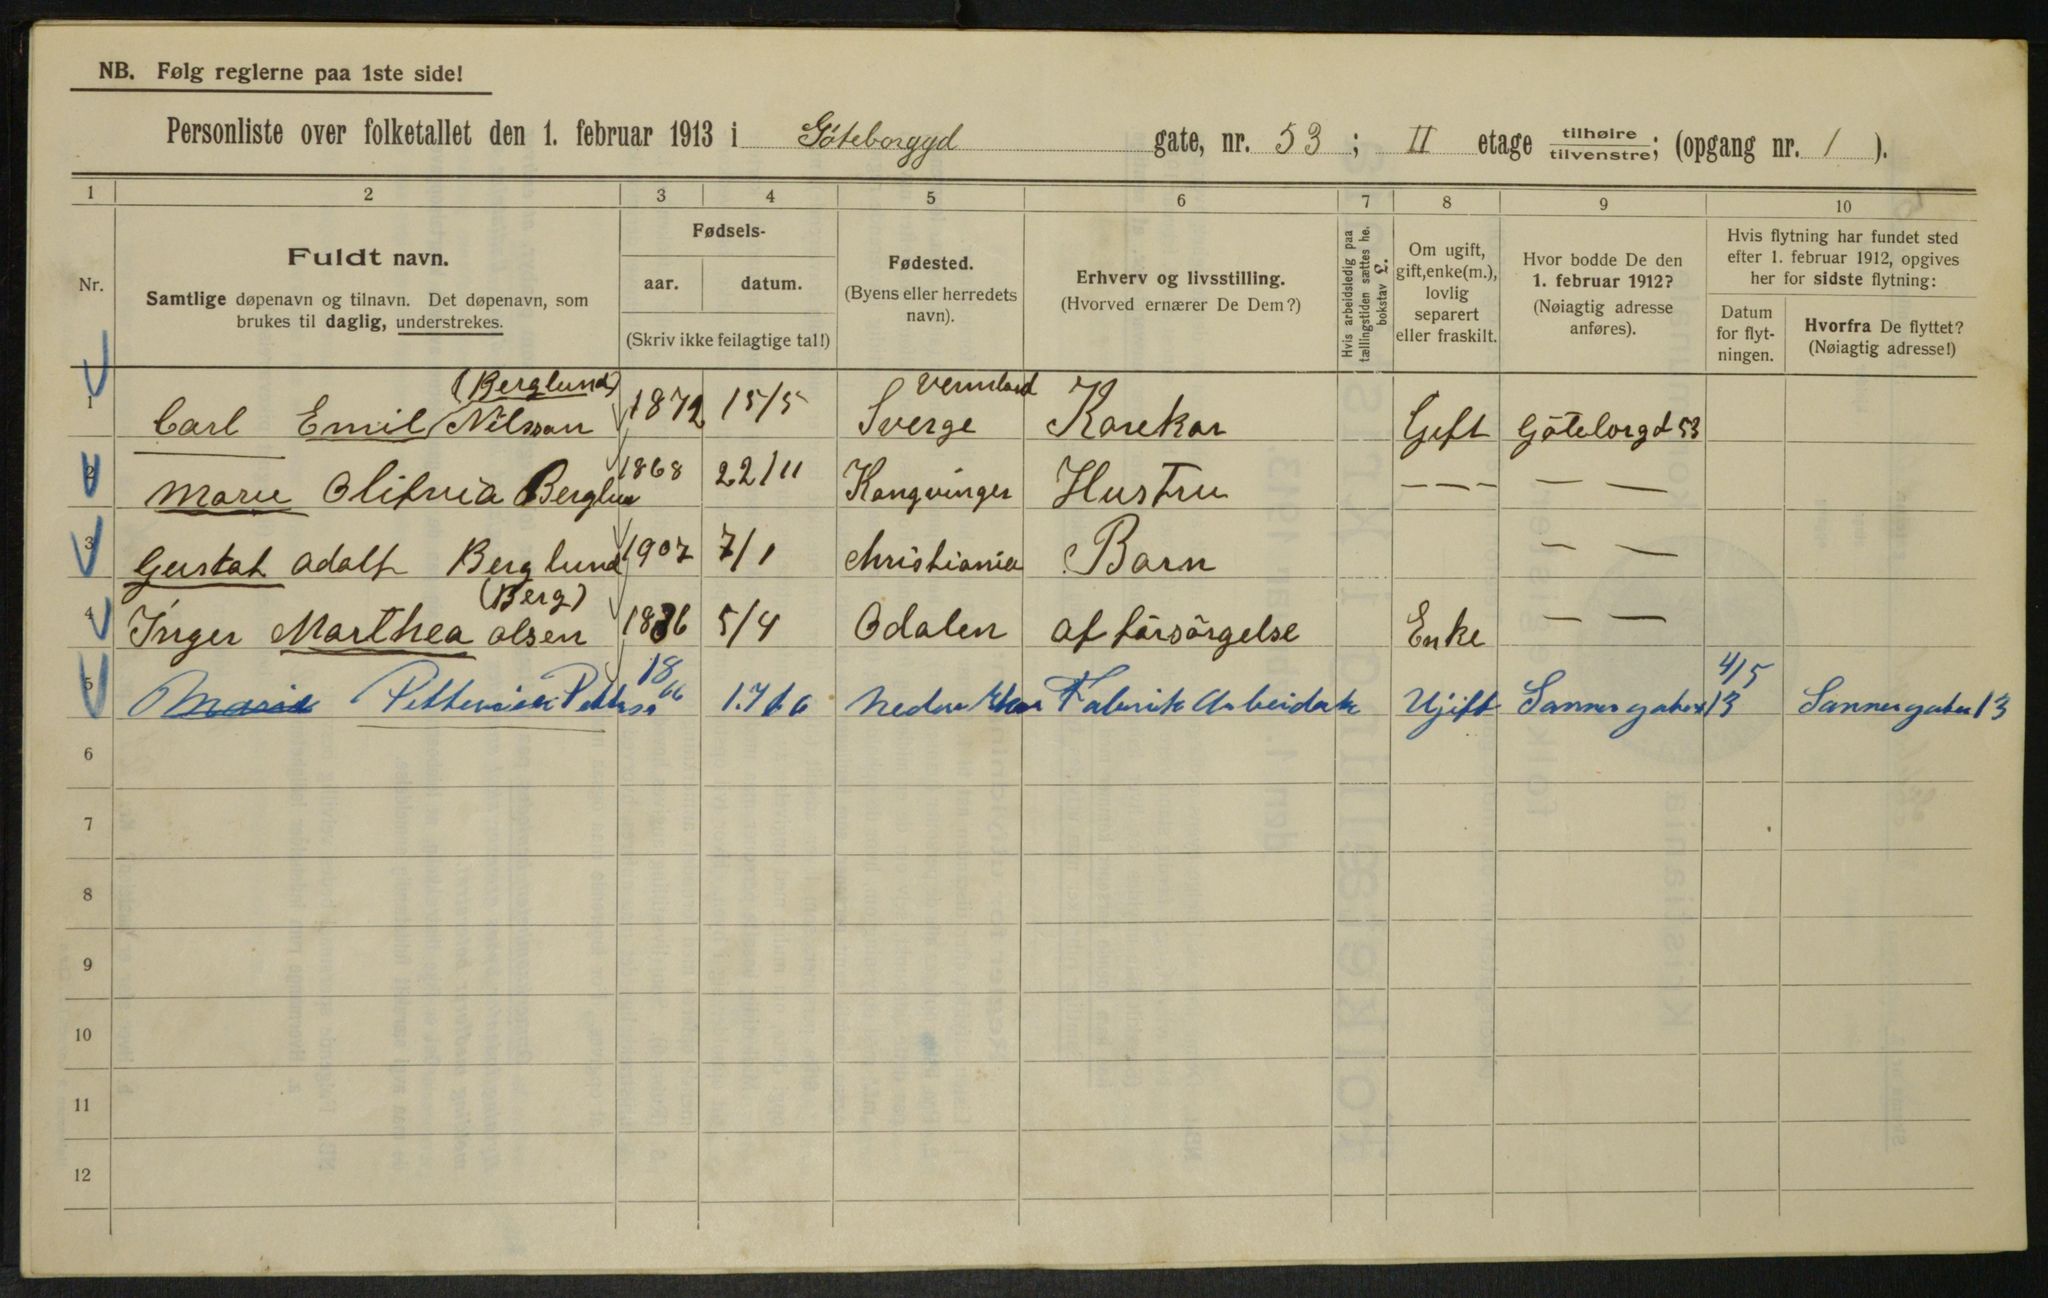 NB. Følg reglerne paa 1ste side!
Personliste over folketallet den 1. februar 1913 i Göteborggd gate, nr. 53 ; II etage tilhøire tilvenstre; (opgang nr. 1 ).
1 2 3 4 5 6 7 8 9 10
Nr.
Fuldt navn.
Samtlige døpenavn og tilnavn. Det døpenavn, som
brukes til daglig, understrekes.
Fødsels-
aar. datum.
(Skriv ikke feilagtige tal!)
Fødested.
(Byens eller herredets
navn).
Erhverv og livsstilling.
(Hvorved ernærer De Dem?)
Hvis arbeidsledig paa
tællingstiden sættes he.
bokstav £.
Om ugift,
gift, enke(m.),
lovlig
separert
eller fraskilt.
Hvor bodde De den
1. februar 1912?
(Nøiagtig adresse
anføres).
Hvis flytning har fundet sted
efter 1. februar 1912, opgives
her for sidste flytning:
Datum
for flyt-
ningen.
Hvorfra De flyttet?
(Nøiagtig adresse!)
(Berglund) Vermland
1 Carl Emil Nilsson 1872 15/5 Sverge Kørekar Gift Göteborgd 53
2 Marie Olifvia Berglun 1868 22/11 Kongvinger Hustru - - - - — —
3 Gustaf adolf Berglund 1907 7/1 Christiania Barn — —
(Berg)
4 Inger Marthea olsen 1836 5/4 Odalen af försörgelse Enke — —
18 4/5
5 Marie Petters 66 17/6 Nedre Fabrik Arbeiderske Ugift Sannergaten 13 Sannergaten 13
6
7
8
9
10
11
12